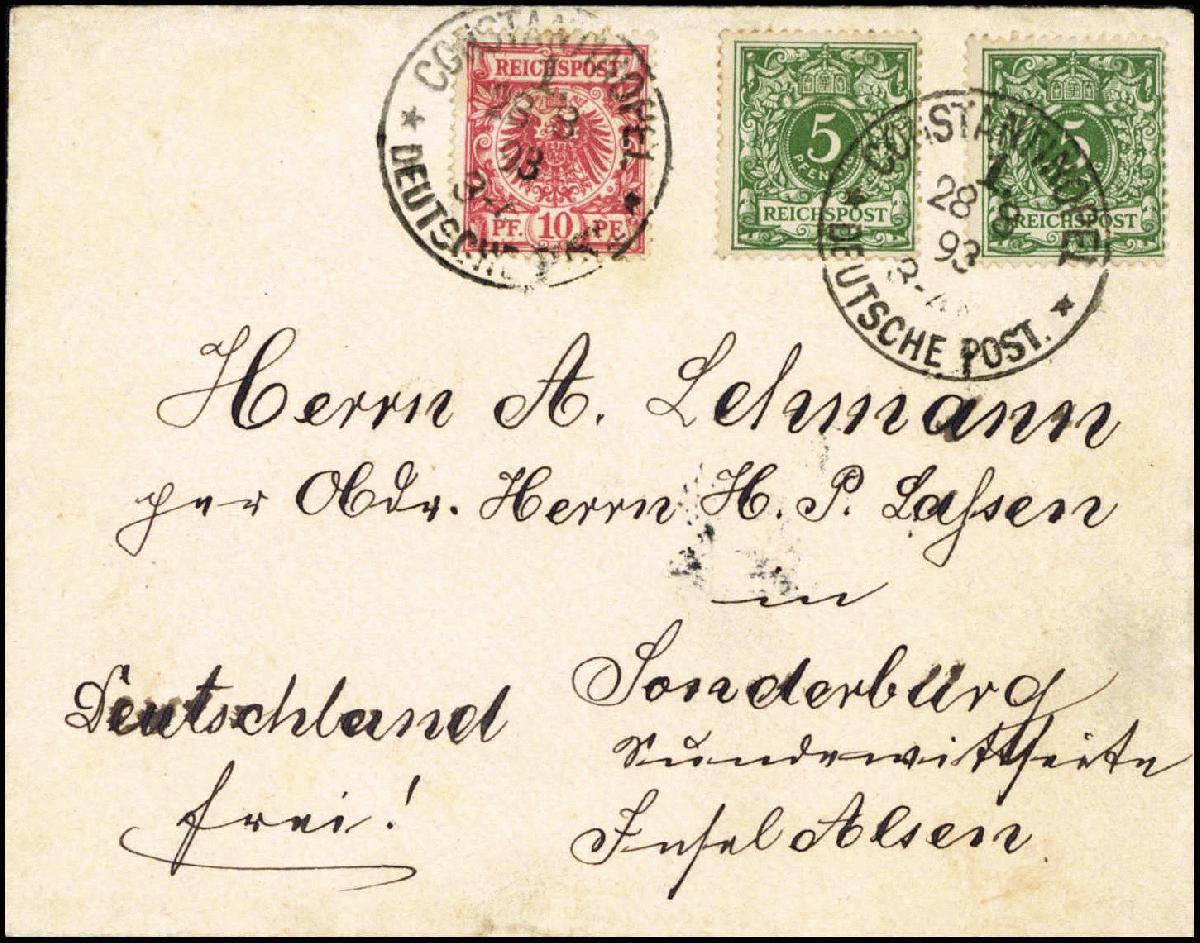 CONSTANTINOPEL 1.
28 8
93
3-4
* DEUTSCHE POST. *
REICHSPOST
PF. 10 PF.
5
PFENNIG
REICHSPOST
5
REICHSPOST
CONSTANTINOPEL 1.
28 8
93
* DEUTSCHE POST. *
Herrn A. Lehmann
per Obdr. Herrn H. P. Laſsen
in
Sonderburg
Sundewittſeite
Inſel Alsen
Deutschland
frei!